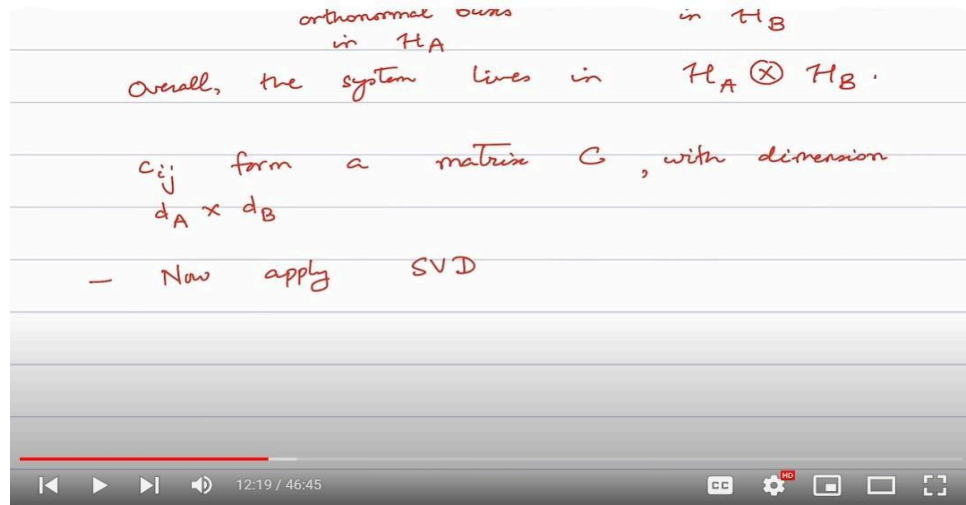 orthonormal basis in H_B
in H_A
Overall, the system lives in H_A ⊗ H_B.
c_ij form a matrix C, with dimension
d_A × d_B
— Now apply SVD
12:19 / 46:45
CC HD